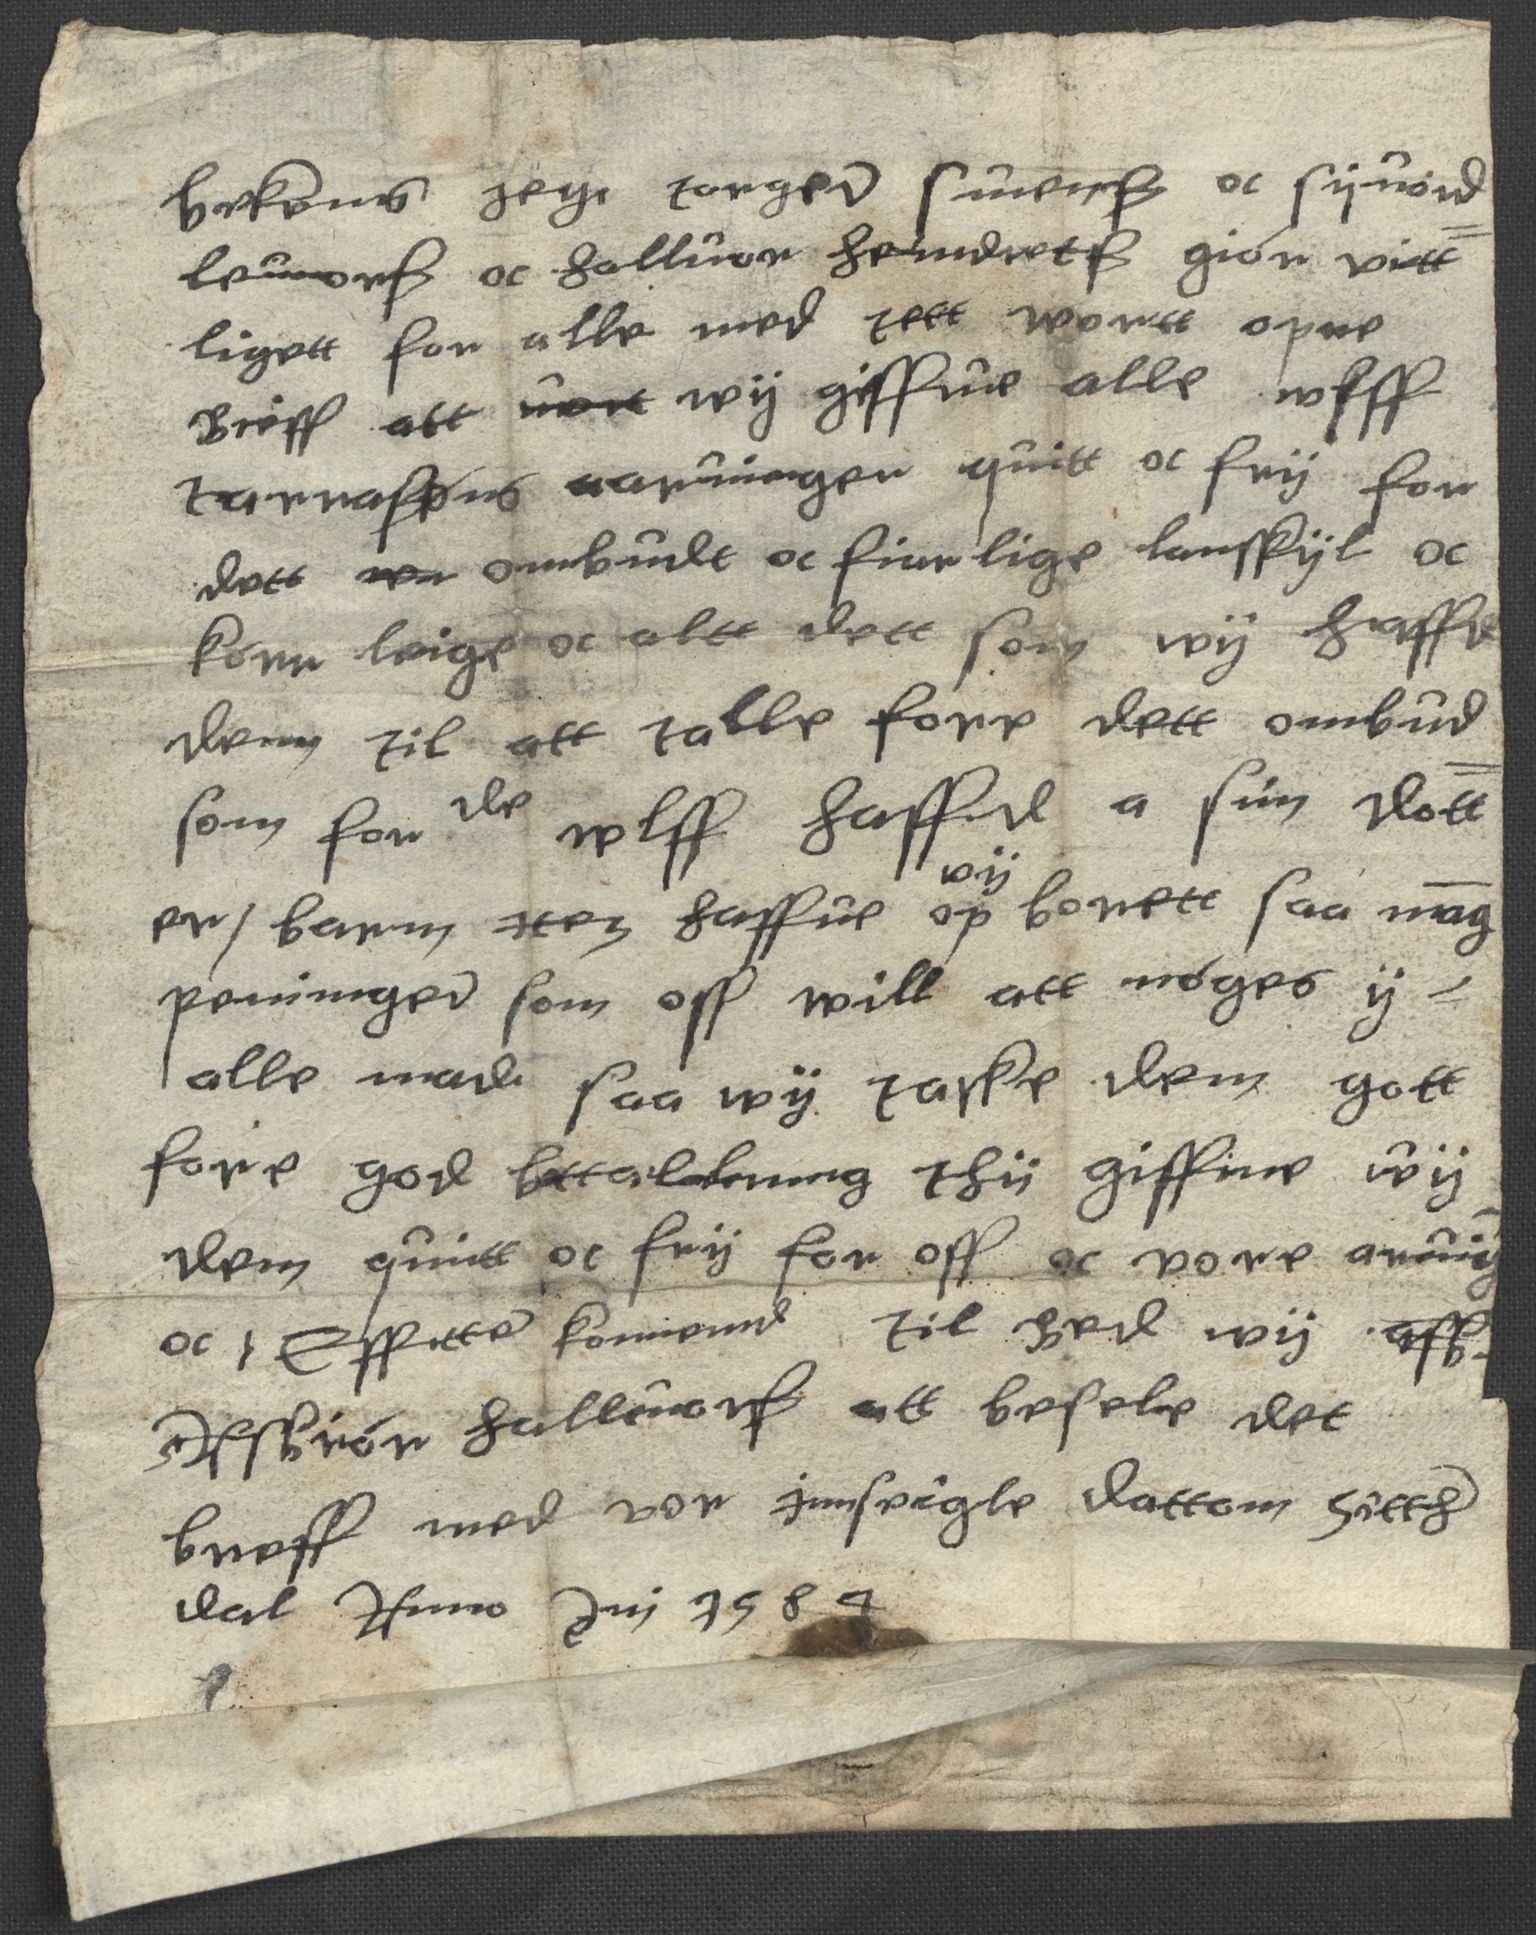 bekens jegh torger suensß oc siuord
leuorß oc halluor hendretß giør vitt
ligett for alle med tett wortt opne
Breff att wij giffue alle wlff
tarraldsens aaruinger quitt oc frij for
dett ombudt oc fiur lige lanskyl oc
korn leige oc altt dett som wij haffde
dem til att talle fore dett ombud
som for de wlff haffde a sin dott
er / barn ttes haffue wij op borett saa mag
peninger som oss will att nøges ij
alle made saa wij tacke dem gott
fore god bettalening thij giffue wij
dem quitt oc frij for oss oc vore aruig
oc Effitte komend til Bed wij
Asbiør halluorß att besegle det
breff med vor innseigle dattom Hitthr
dal Anno Dni 1584